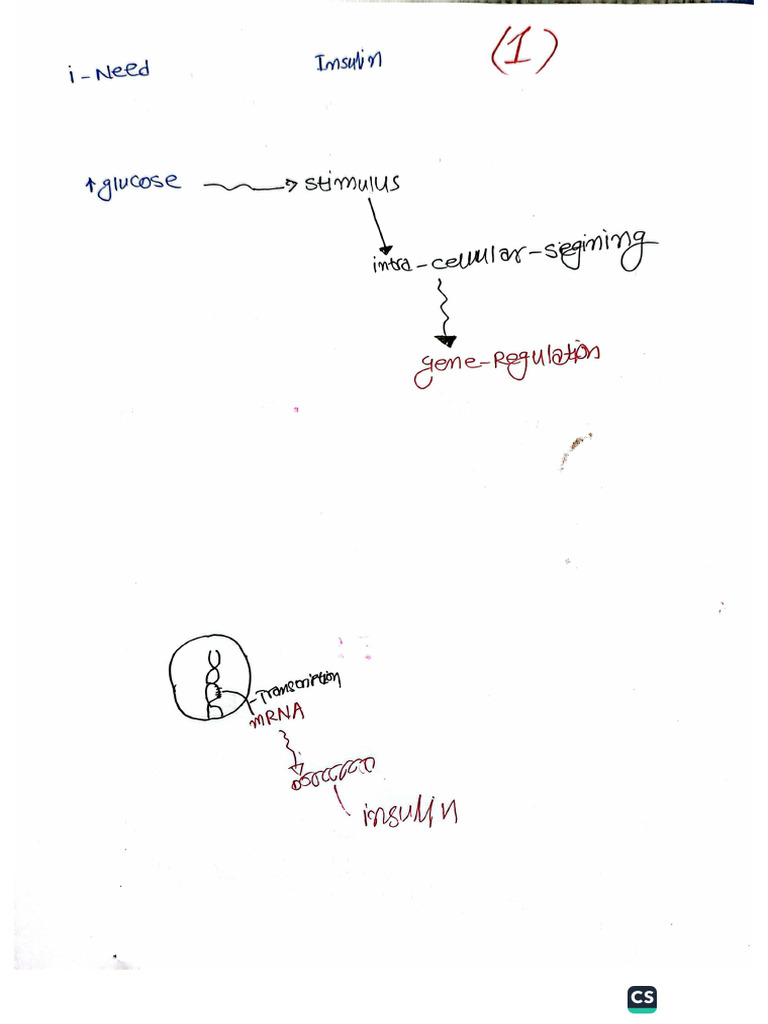 i-Need Insulin (1)
↑glucose → stimulus
intra-cellular-segining
gene-Regulation
-Transcription
mRNA
insulin
CS